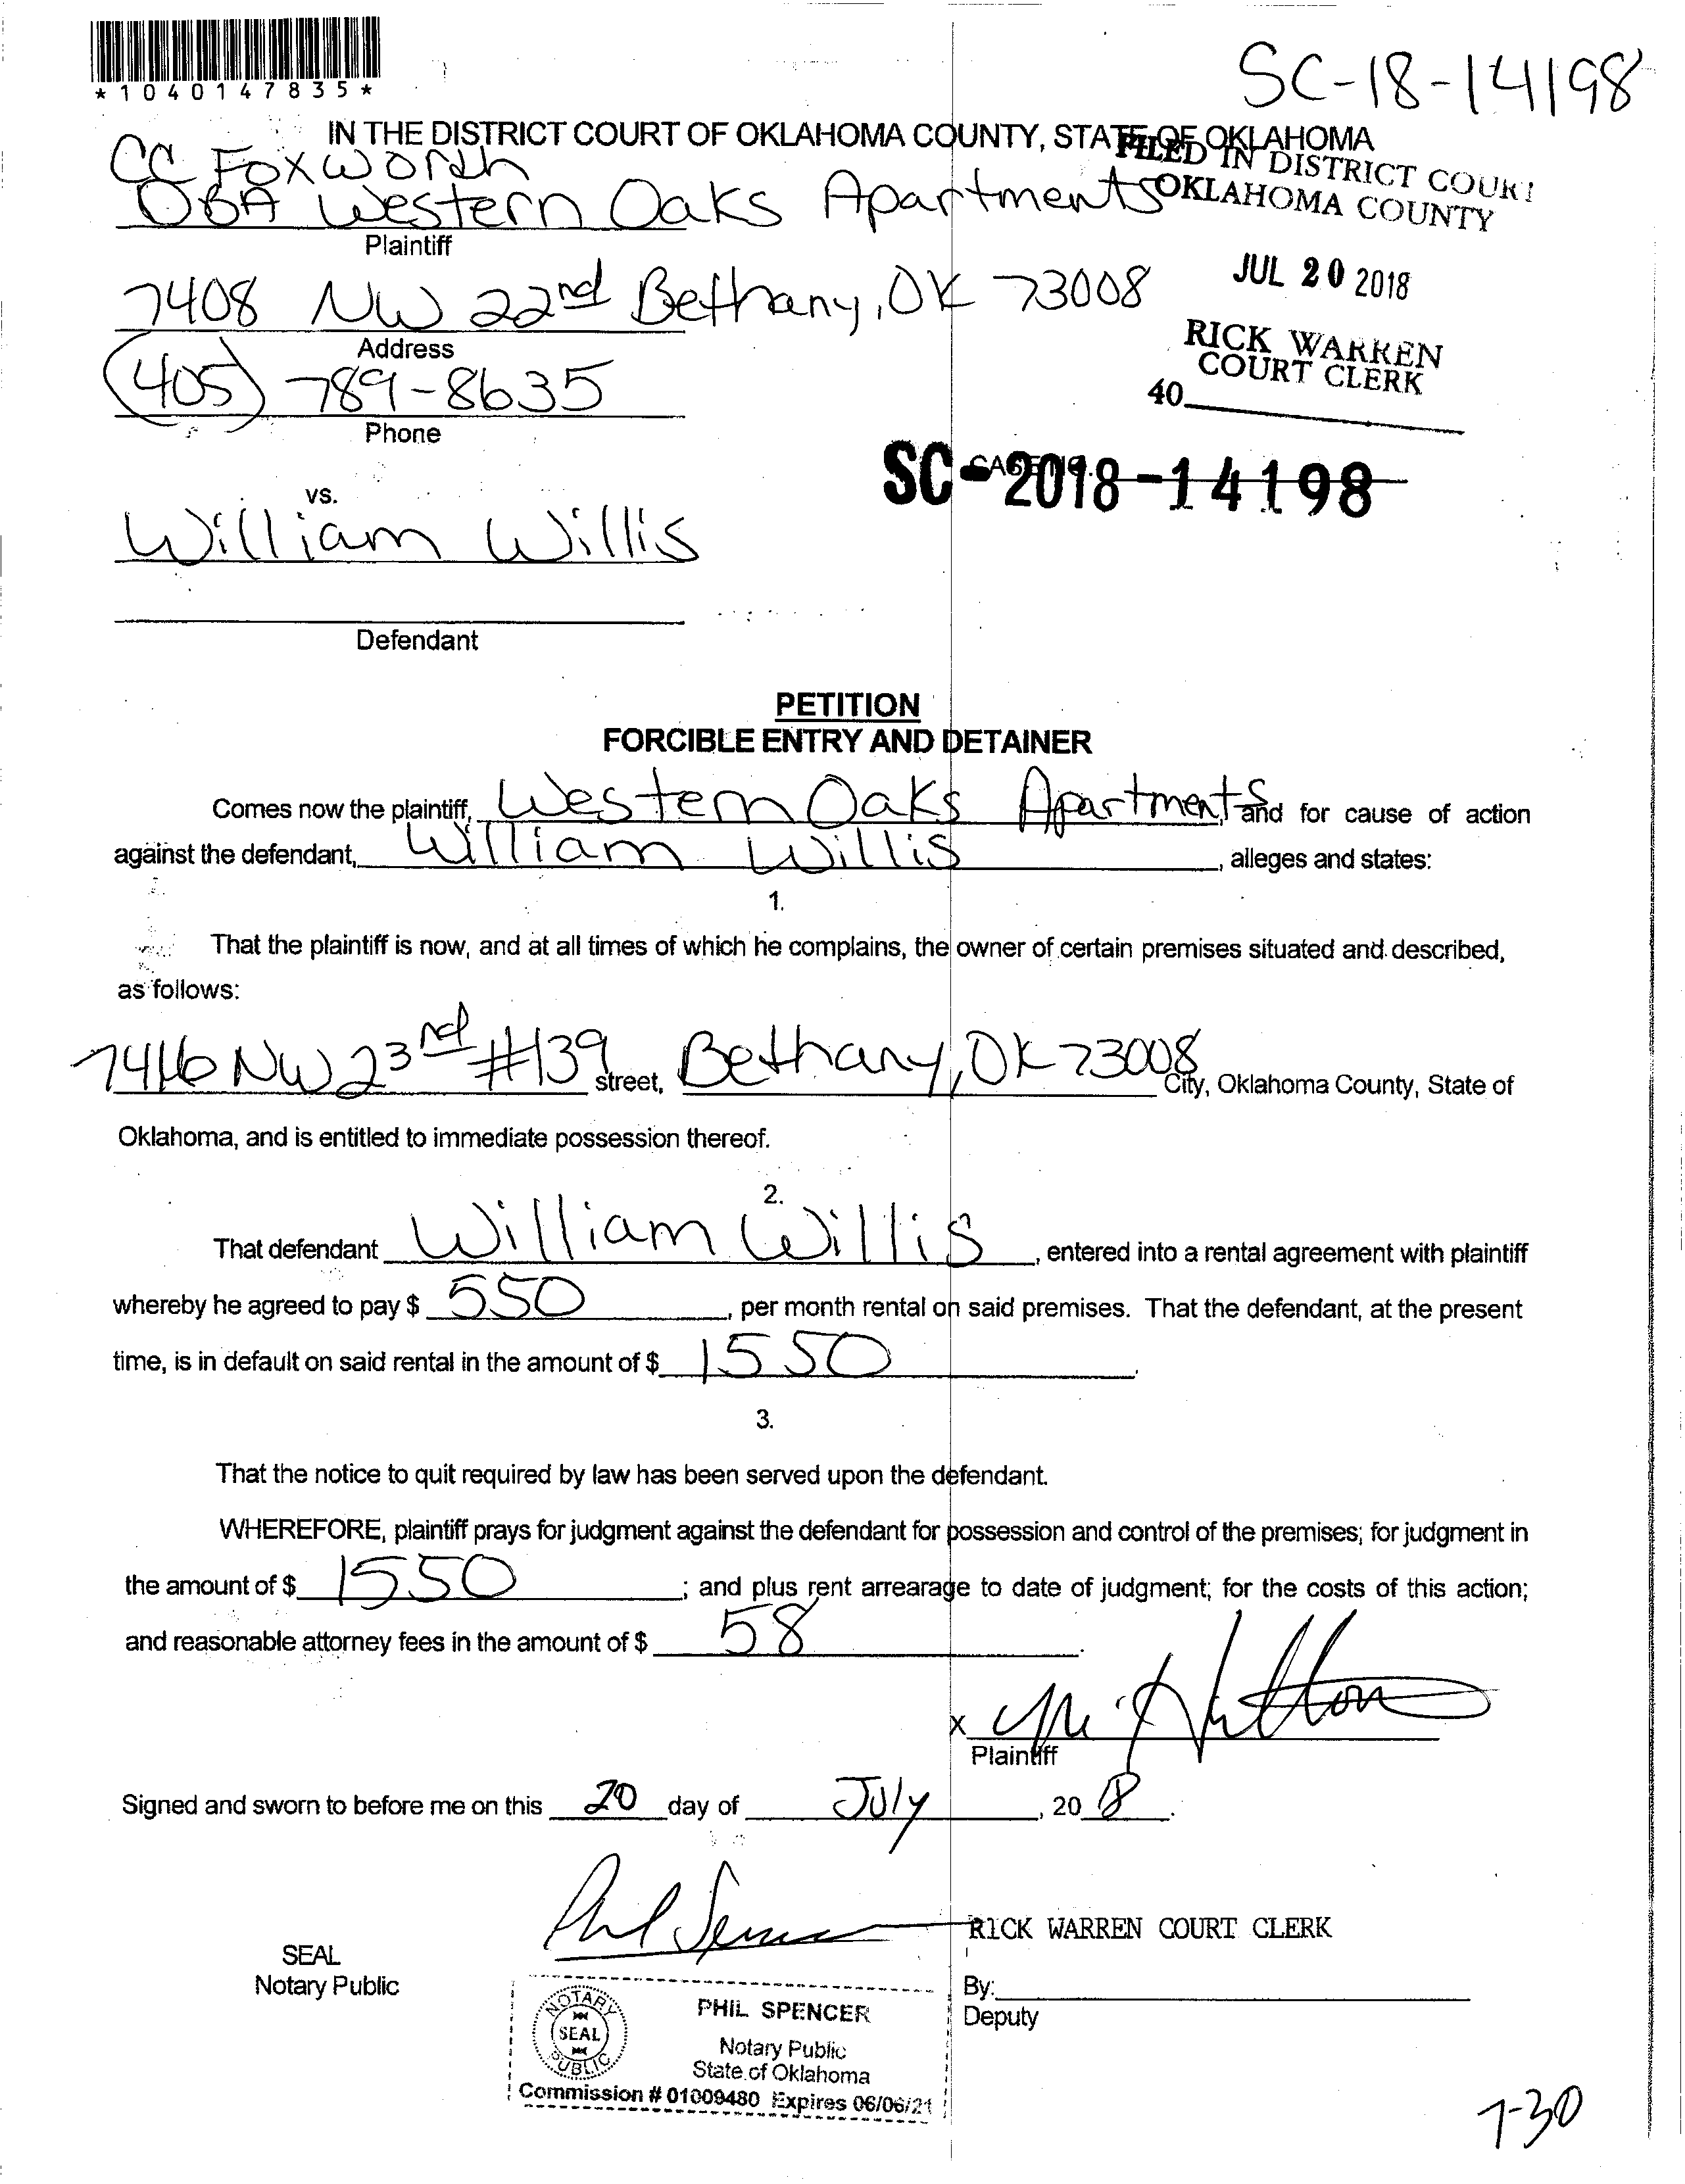 *1040147835*
SC-18-14198
IN THE DISTRICT COURT OF OKLAHOMA COUNTY, STATE OF OKLAHOMA
FILED IN DISTRICT COURT
OKLAHOMA COUNTY
CC Foxworth
DBA Western Oaks Apartments
Plaintiff
JUL 20 2018
7408 NW 22nd Bethany, OK 73008
Address
RICK WARREN
COURT CLERK
40
(405) 789-8635
Phone
CASE NO.
SC-2018-14198
vs.
William Willis
Defendant
PETITION
FORCIBLE ENTRY AND DETAINER
Comes now the plaintiff, Western Oaks Apartments and for cause of action
against the defendant, William Willis, alleges and states:
1.
That the plaintiff is now, and at all times of which he complains, the owner of certain premises situated and described,
as follows:
7416 NW 23rd #139 street, Bethany, OK 73008 City, Oklahoma County, State of
Oklahoma, and is entitled to immediate possession thereof.
2.
That defendant William Willis, entered into a rental agreement with plaintiff
whereby he agreed to pay $ 550, per month rental on said premises. That the defendant, at the present
time, is in default on said rental in the amount of $ 1550.
3.
That the notice to quit required by law has been served upon the defendant.
WHEREFORE, plaintiff prays for judgment against the defendant for possession and control of the premises; for judgment in
the amount of $ 1550; and plus rent arrearage to date of judgment; for the costs of this action;
and reasonable attorney fees in the amount of $ 58.
X Hutton
Plaintiff
Signed and sworn to before me on this 20 day of July, 2018.
Phil Spencer
RICK WARREN COURT CLERK
SEAL
Notary Public
By:
Deputy
NOTARY
SEAL
PUBLIC
PHIL SPENCER
Notary Public
State of Oklahoma
Commission # 01009480 Expires 06/06/21
7-30